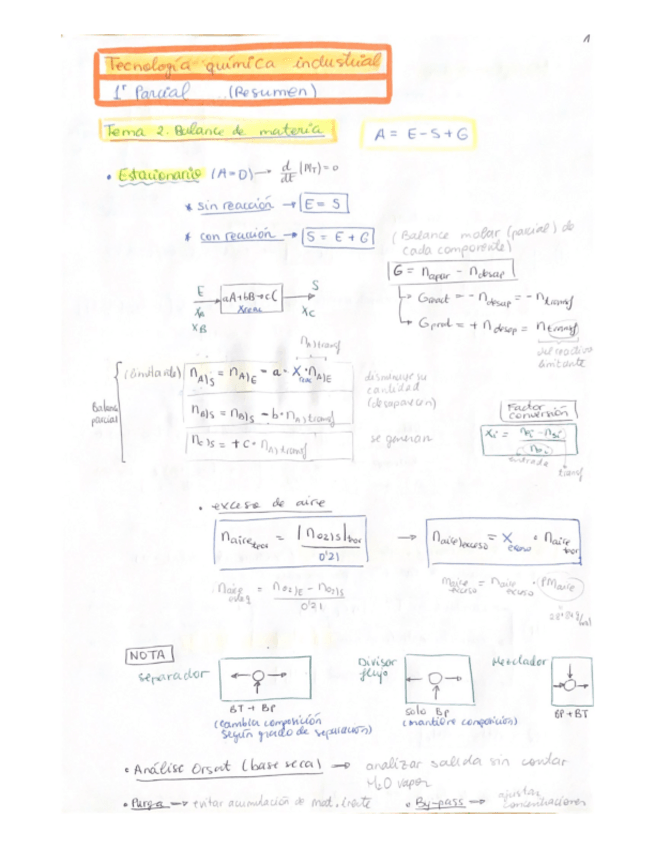 1
Tecnología química industrial
1r Parcial (Resumen)
Tema 2. Balance de materia
A = E-S+G
• Estacionario (A=0) → d/dt (MT)=0
* sin reacción → E = S
* con reacción → S = E + G
(Balance molar (parcial) de
cada componente)
G = napar - ndesap
↳ Greact = - ndesap = - ntransf
↳ Gprod = + ndesap = ntransf
del reactivo
limitante
E
aA+bB→cC
S
XA
XB
XC
nA)transf
Balance
parcial
(limitante)
nA)S = nA)E - a · X · nA)E
disminuye su
cantidad
(desaparecen)
nB)S = nB)E - b · nA)transf
nC)S = + c · nA)transf
se generan
Factor
conversión
entrada
transf
• exceso de aire
naire = |nO2)S| / 0'21
→
naire)exceso = Xexceso · naire
= nO2)E - nO2)S / 0'21
naire exceso = naire exceso · PMaire
NOTA
separador
BT → BP
(cambia composición
según grado de separación)
Divisor
flujo
Solo BP
(mantiene composición)
Mezclador
BP + BT
• Análise Orsat (base seca) → analizar salida sin contar
H2O vapor
• Purga → evitar acumulación de mat. inerte
• By-pass → ajustar
concentraciones